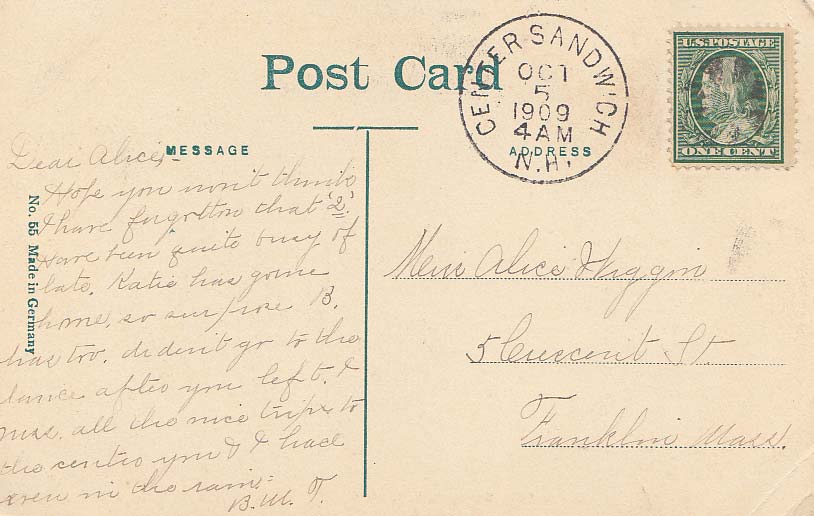 Post Card
MESSAGE
ADDRESS
CENTER SANDWICH
OCT
5
1909
4AM
N.H.
U.S. POSTAGE
ONE CENT
No. 55 Made in Germany
Dear Alice,-
Hope you won't think
I have forgotten that '2'.
Have been quite busy of
late. Katie has gone
home, so suppose B.
has too. didn't go to the
dance after you left. I
miss all the nice trips to
the centre you & I had
even in the rain.
B. M. T.
Miss Alice Wiggin
5 Crescent St.
Franklin Mass.